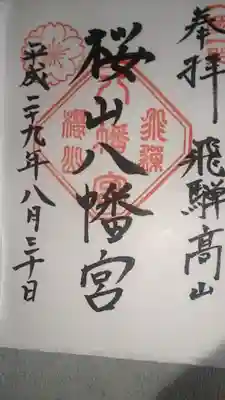 奉拝 飛騨高山
桜山八幡宮
平成二十九年八月三十日
八幡宮
飛騨
櫻山